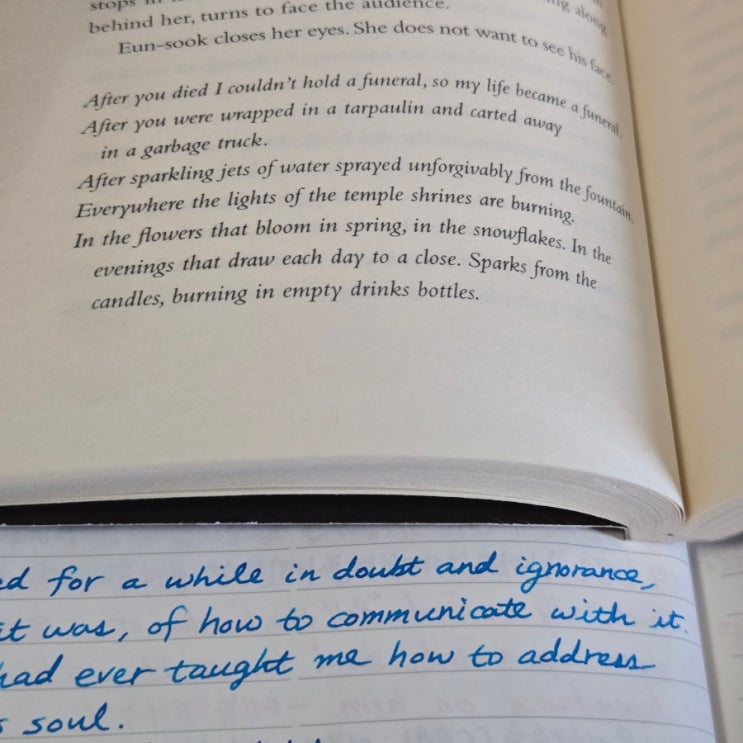 stops in
ng along
behind her, turns to face the audience.
Eun-sook closes her eyes. She does not want to see his face.
After you died I couldn't hold a funeral, so my life became a funeral.
After you were wrapped in a tarpaulin and carted away
in a garbage truck.
After sparkling jets of water sprayed unforgivably from the fountain.
Everywhere the lights of the temple shrines are burning.
In the flowers that bloom in spring, in the snowflakes. In the
evenings that draw each day to a close. Sparks from the
candles, burning in empty drinks bottles.
ed for a while in doubt and ignorance,
it was, of how to communicate with it.
had ever taught me how to address
s soul.